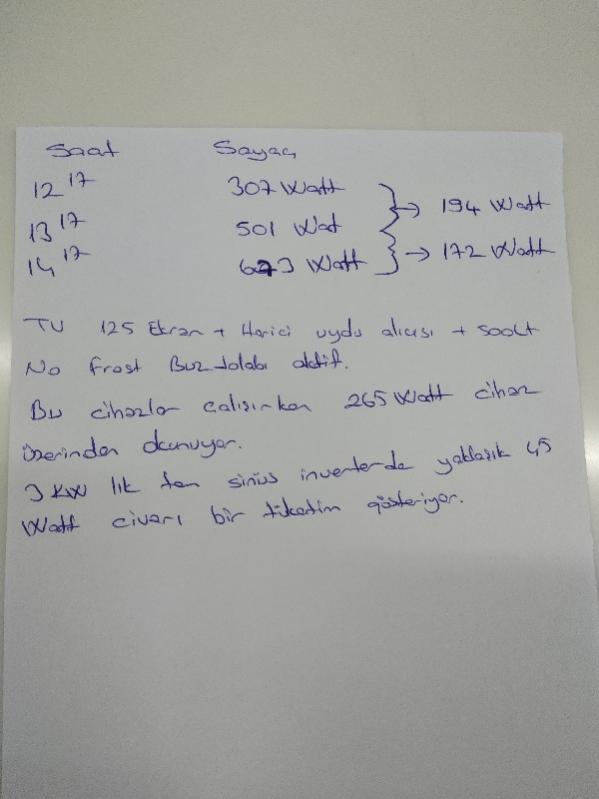 Saat Sayaç
12 17 307 Watt
→ 194 Watt
13 17 501 Wat
14 17 673 Watt → 172 Watt
TV 125 Ekran + Harici uydu alıcısı +
No Frost Buzdolabı aktif.
Bu cihazlar calışırken 265 Watt cihaz
üzerinden okunuyor.
3 KW lık tam sinüs inverterde yaklaşık 45
Watt civarı bir tüketim gösteriyor.